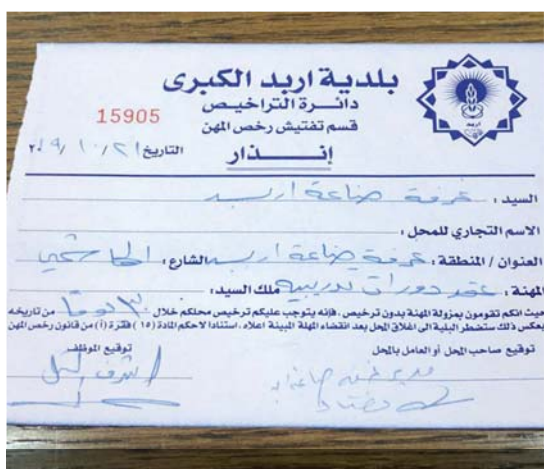 بلدية اربد الكبرى
دائرة التراخيص
قسم تفتيش رخص المهن
اربد
15905
إنــذار
التاريخ ٢١ / ١٠ / ٢٠١٩
السيد : غرفة صناعة اربد
الاسم التجاري للمحل :
العنوان / المنطقة : غرفة صناعة اربد الشارع : الهاشمي
المهنة : عقد دورات تدريبية ملك السيد :
حيث انكم تقومون بمزولة المهنة بدون ترخيص ، فإنه يتوجب عليكم ترخيص محلكم خلال ٣٠ يوماً من تاريخه
بعكس ذلك ستضطر البلدية الى اغلاق المحل بعد انقضاء المهلة المبينة اعلاه ، استنادا لاحكم المادة ( ١٥ ) فقترة (أ) من قانون رخص المهن
توقيع صاحب المحل أو العامل بالمحل توقيع الموظف
مدير غرفة صناعة اربد